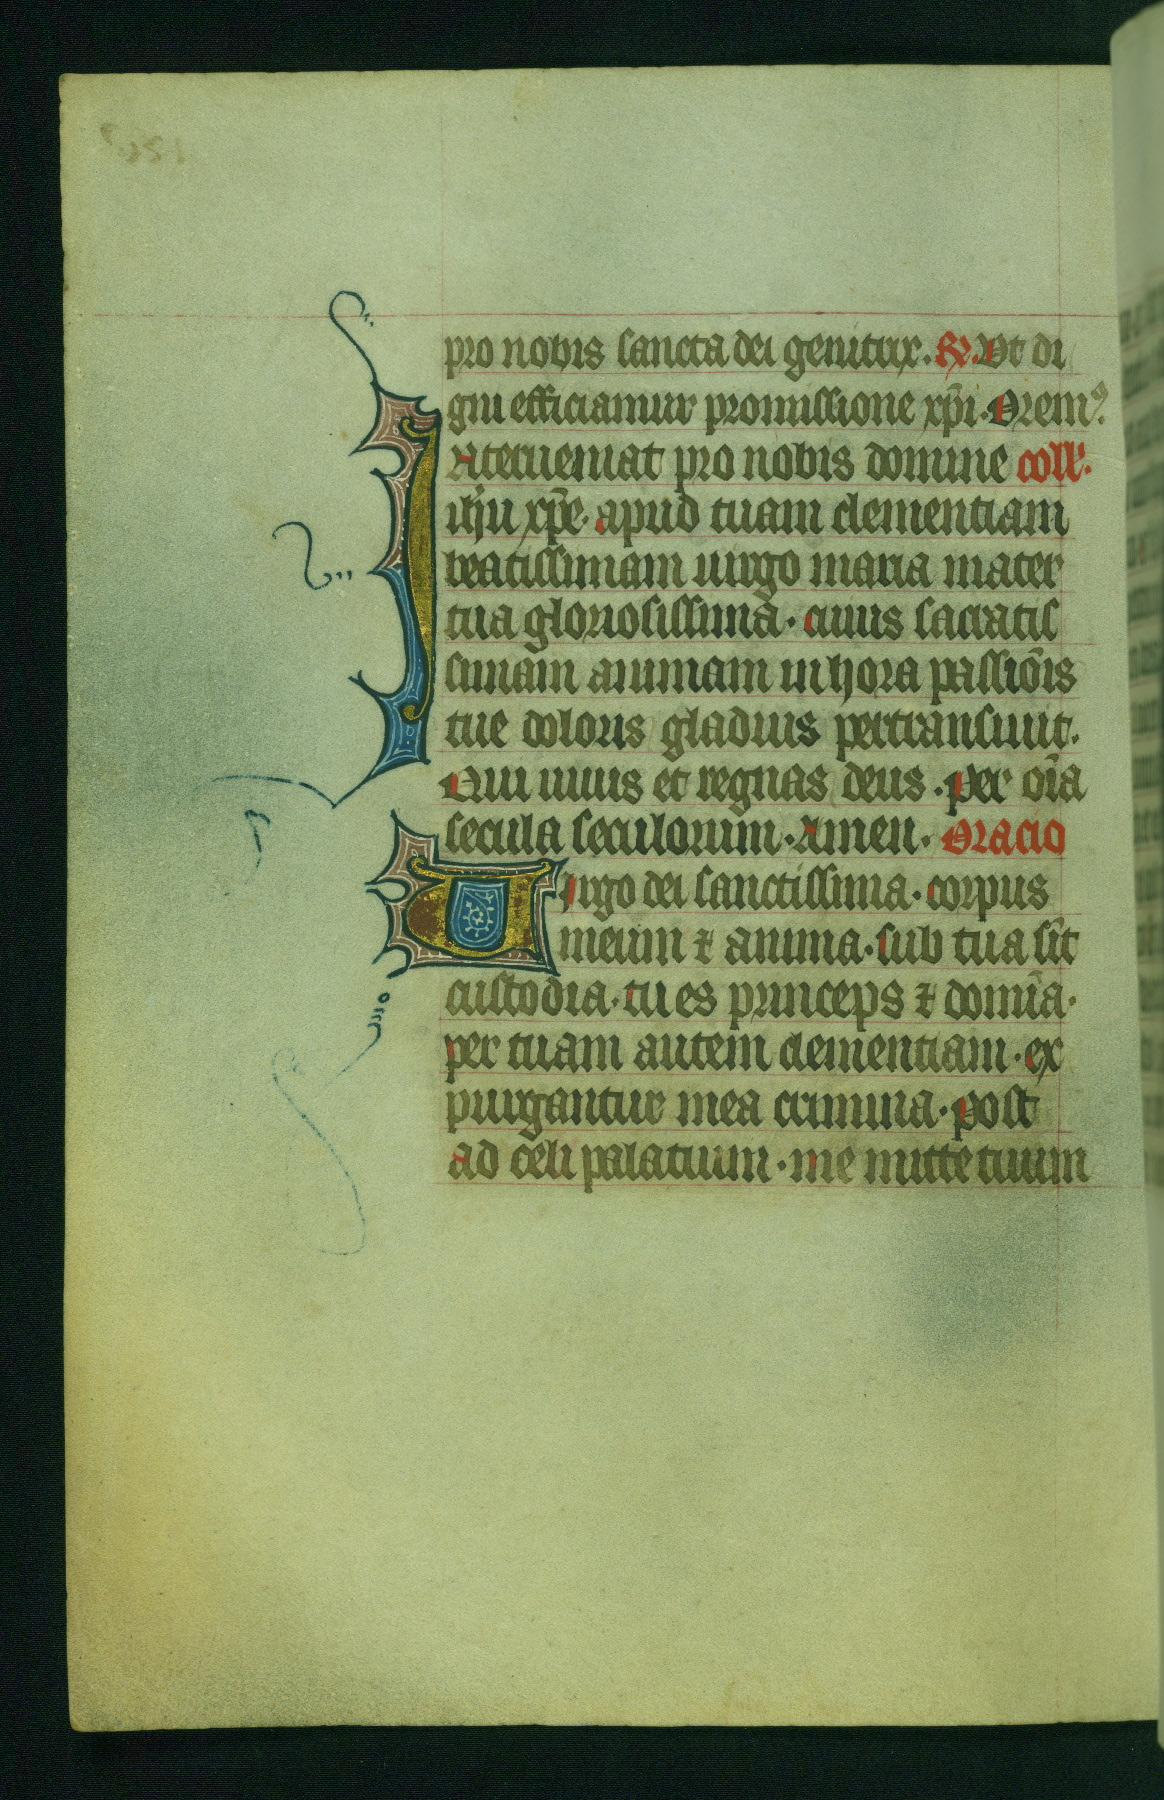 pro nobis sancta dei genitrix. R. Vt di
gni efficiamur promissione xp̄i. Orem⁹.
INterueniat pro nobis domine coll'.
ih̄u xp̄e. apud tuam clementiam
beatissimam uirgo maria mater
tua gloriosissima. cuius sacratis
simam animam in hora passiōis
tue doloris gladius pertransiuit.
Qui uiuis et regnas deus. per oīa
secula seculorum. Amen. Oracio
VIrgo dei sanctissima. corpus
meum ⁊ anima. sub tua sīt
custodia. tu es princeps ⁊ domīa.
per tuam autem clementiam. ex
purgantur mea crimina. post
ad celi palatium. me mitte tuum